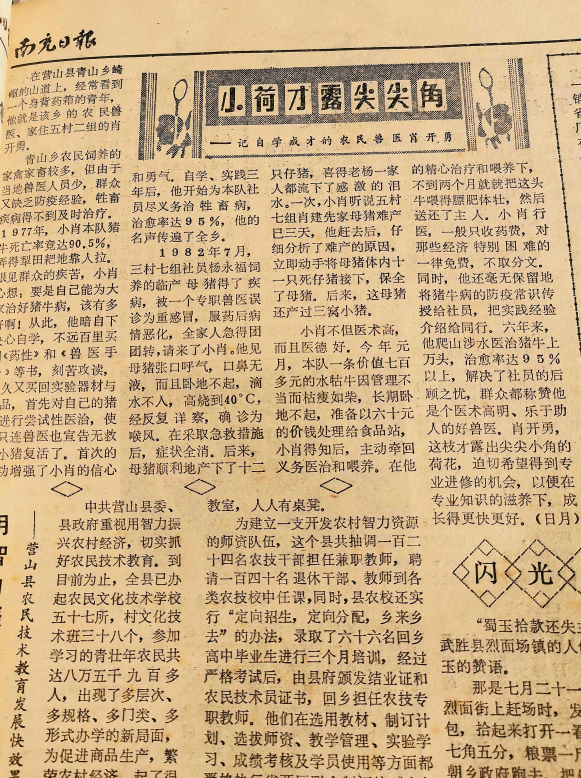 南充日報
小荷才露尖尖角
——记自学成才的农民兽医肖开勇
在营山县青山乡崎
岖的山道上，经常看到
一个身背药箱的青年，
他就是该乡的农民兽
医、家住五村二组的肖
开勇。
青山乡农民饲养的
家禽家畜较多，但由于
当地兽医人员少，群众
又缺乏防疫经验，牲畜
疾病得不到及时治疗。
1977年，小肖本队猪
牛死亡率竟达90.5%，
弄得犁田耙地靠人拉。
眼见群众的疾苦，小肖
心想：要是自己能为大
家治好猪牛病，该有多
好啊！从此，他暗自下
决心自学，不远百里买
《药性》和《兽医手
》等书，刻苦攻读，
久又买回实验器材与
品，首先对自己的猪
进行尝试性医治，使
只连兽医也宣告无救
小猪复活了。首次的
功增强了小肖的信心
和勇气。自学、实践三
年后，他开始为本队社
员尽义务治牲畜病，
治愈率达95%，他的
名声传遍了全乡。
1982年7月，
三村七组社员杨永福饲
养的临产母猪得了疾
病，被一个专职兽医误
诊为重感冒，服药后病
情恶化，全家人急得团
团转，请来了小肖。他见
母猪张口呼气，口鼻无
液，而且卧地不起，滴
水不人，高烧到40℃，
经反复详察，确诊为
喉风。在采取急救措施
后，症状全消。后来，
母猪顺利地产下了十二
只仔猪，喜得老杨一家
人都流下了感激的泪
水。一次，小肖听说五村
七组肖建先家母猪难产
已三天，他赶去后，仔
细分析了难产的原因，
立即动手将母猪体内十
一只死仔猪接下，保全
了母猪。后来，这母猪
还产过三窝小猪。
小肖不但医术高，
而且医德好。今年元
月，本队一条价值七百
多元的水牯牛因管理不
当而枯瘦如柴，长期卧
地不起，准备以六十元
的价钱处理给食品站，
小肖得知后，主动牵回
义务医治和喂养。在他
的精心治疗和喂养下，
不到两个月就就把这头
牛喂得膘肥体壮，然后
送还了主人。小肖行
医，一般只收药费，对
那些经济特别困难的
一律免费，不取分文。
同时，他还毫无保留地
将猪牛病的防疫常识传
授给社员，把实践经验
介绍给同行。六年来，
他爬山涉水医治猪牛上
万头，治愈率达95%
以上，解决了社员的后
顾之忧，群众都称赞他
是个医术高明、乐于助
人的好兽医。肖开勇，
这枝才露出尖尖小角的
荷花，迫切希望得到专
业进修的机会，以便在
专业知识的滋养下，成
长得更快更好。（日月）
——营山县农民技术教育发展快效果
中共营山县委、
县政府重视用智力振
兴农村经济，切实抓
好农民技术教育。到
目前为止，全县已办
起农民文化技术学校
五十七所，村文化技
术班三十八个，参加
学习的青壮年农民共
达八万五千九百多
人，出现了多层次、
多规格、多门类、多
形式办学的新局面，
为促进商品生产，繁
荣农村经济，起了很
教室，人人有桌凳。
为建立一支开发农村智力资源
的师资队伍，这个县共抽调一百二
十四名农技干部担任兼职教师，聘
请一百四十名退休干部、教师到各
类农技校中任课，同时，县农校还实
行“定向招生，定向分配，乡来乡
去”的办法，录取了六十六名回乡
高中毕业生进行三个月培训，经过
严格考试后，由县府颁发结业证和
农民技术员证书，回乡担任农技专
职教师。他们在选用教材、制订计
划、选拔师资、教学管理、实验学
习、成绩考核及学员使用等方面都
闪光
“蜀玉拾款还失主
武胜县烈面场镇的人们
玉的赞语。
那是七月二十一
烈面街上赶场时，发
包，拾起来打开一看
七角五分，粮票一